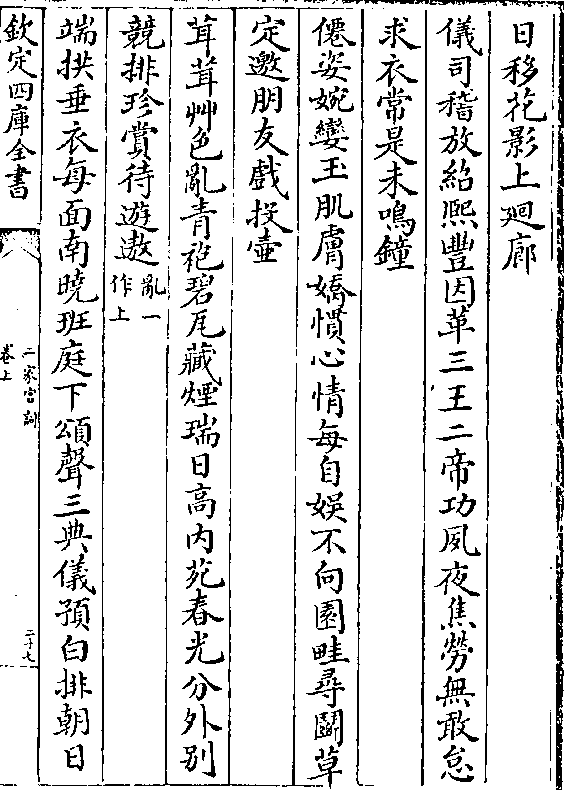 日移花影上廻廊
儀司稽放紹熙豐因革三王二帝功夙夜焦勞無敢怠
求衣常是未鳴鐘
僊姿婉孌玉肌膚嬌慣心情每自娱不向園畦尋鬬草
定邀朋友戲投壺
茸茸艸色亂青袍碧瓦藏煙瑞日高内苑春光分外别
競排珍賞待遊遨亂一作上
端拱垂衣每面南曉班庭下頌聲三典儀預白排朝日
欽定四庫全書
二家宫詞
卷上
二十七